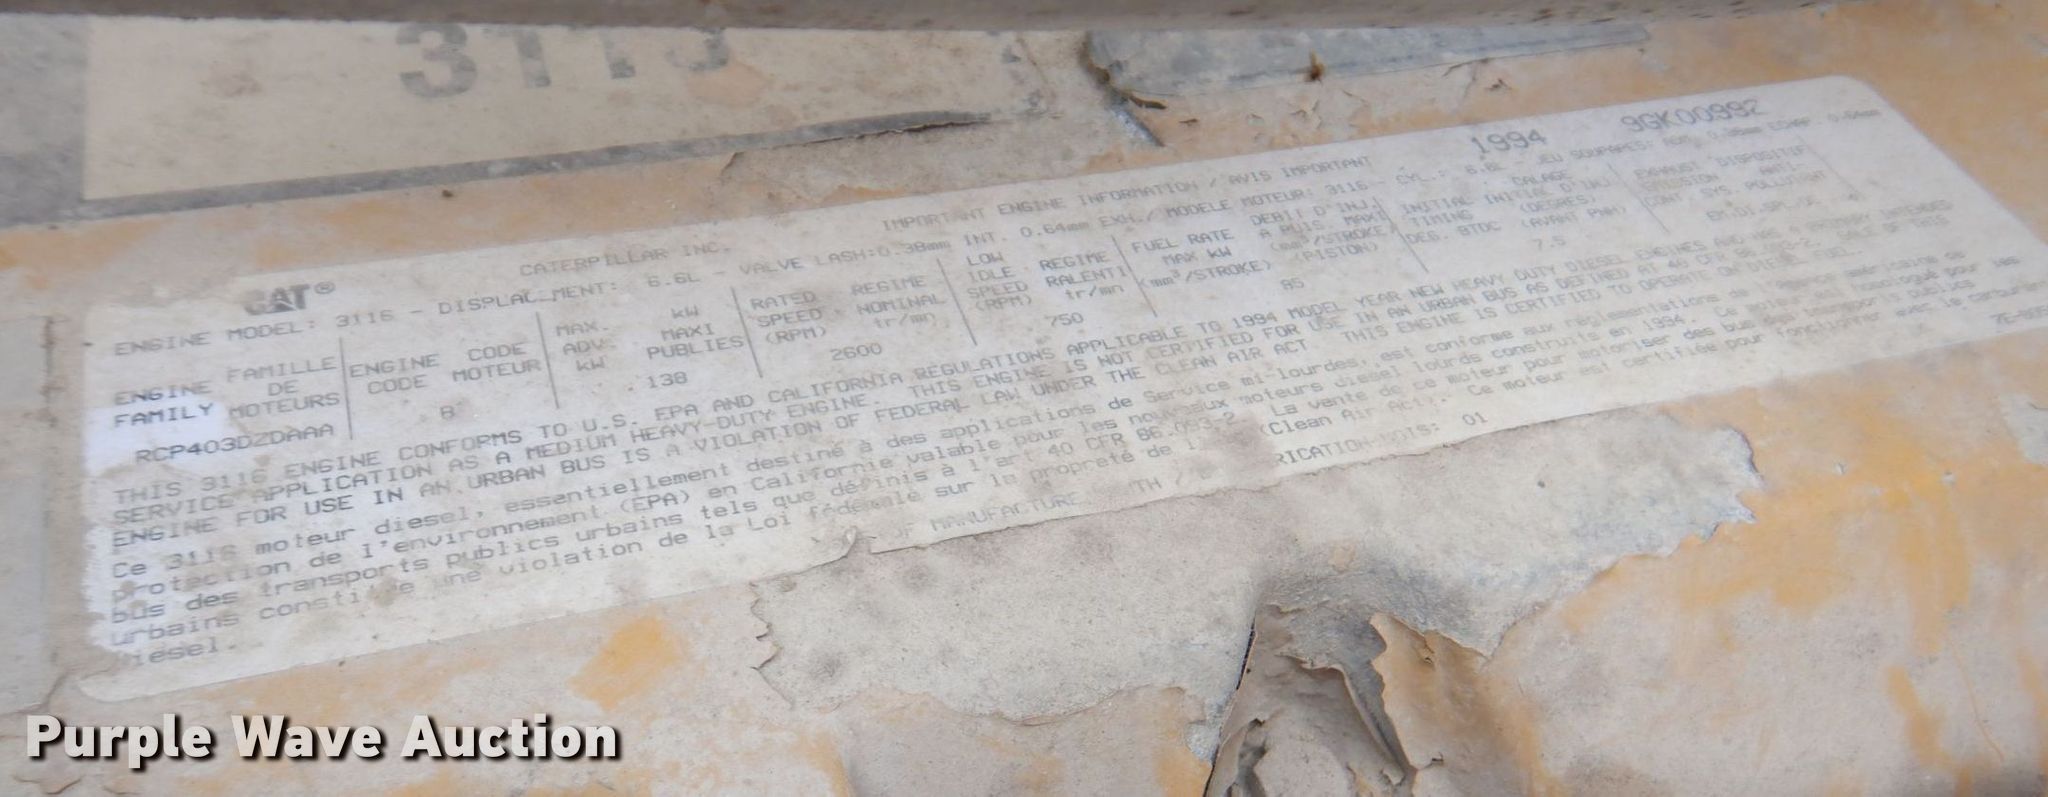 3116
CAT®
CATERPILLAR INC.
IMPORTANT ENGINE INFORMATION / AVIS IMPORTANT
1994
9GK00992
ENGINE MODEL: 3116 - DISPLACEMENT: 6.6L - VALVE LASH:0.38mm INT. 0.64mm EXH./ MODELE MOTEUR: 3116 - CYL.: 6.6L - JEU SOUPAPES: 0.38mm 0.64mm
ENGINE FAMILY FAMILLE DE MOTEURS
RCP403DZDAAA
ENGINE CODE CODE MOTEUR
8
MAX. ADV. kW kW MAXI PUBLIES
138
RATED SPEED (RPM) REGIME NOMINAL tr/mn
2600
LOW IDLE SPEED (RPM) REGIME RALENTI tr/mn
750
FUEL RATE MAX kW (mm³/STROKE) DEBIT D'INJ. A PUIS. MAXI (mm³/STROKE/PISTON)
85
INITIAL TIMING DEG. BTDC CALAGE INITIAL D'INJ. (DEGRES) (AVANT PMH)
7.5
EXHAUST EMISSION CONT. SYS. DISPOSITIF ANTI-POLLUANT
EM,DI,SPL,OC
THIS 3116 ENGINE CONFORMS TO U.S. EPA AND CALIFORNIA REGULATIONS APPLICABLE TO 1994 MODEL YEAR NEW HEAVY DUTY DIESEL ENGINES AND HAS A PRIMARY INTENDED
SERVICE APPLICATION AS A MEDIUM HEAVY-DUTY ENGINE. THIS ENGINE IS NOT CERTIFIED FOR USE IN AN URBAN BUS AS DEFINED AT 40 CFR 86.093-2. SALE OF THIS
ENGINE FOR USE IN AN URBAN BUS IS A VIOLATION OF FEDERAL LAW UNDER THE CLEAN AIR ACT THIS ENGINE IS CERTIFIED TO OPERATE ON DIESEL FUEL.
Ce 3116 moteur diesel, essentiellement destiné à des applications de Service mi-lourdes, est conforme aux réglementations de l'Agence américaine de
protection de l'environnement (EPA) en Californie valable pour les nouveaux moteurs diesel lourds construits en 1994. Ce moteur est homologué pour les
bus des transports publics urbains tels que définis à l'art 40 CFR 86.093-2. La vente de ce moteur pour motoriser des bus des transports publics
urbains constitue une violation de la Loi fédérale sur la propreté de l' (Clean Air Act). Ce moteur est certifiée pour fonctionner avec le carburant
diesel.
OF MANUFACTURE TH / RICATION-MOIS: 01
Purple Wave Auction